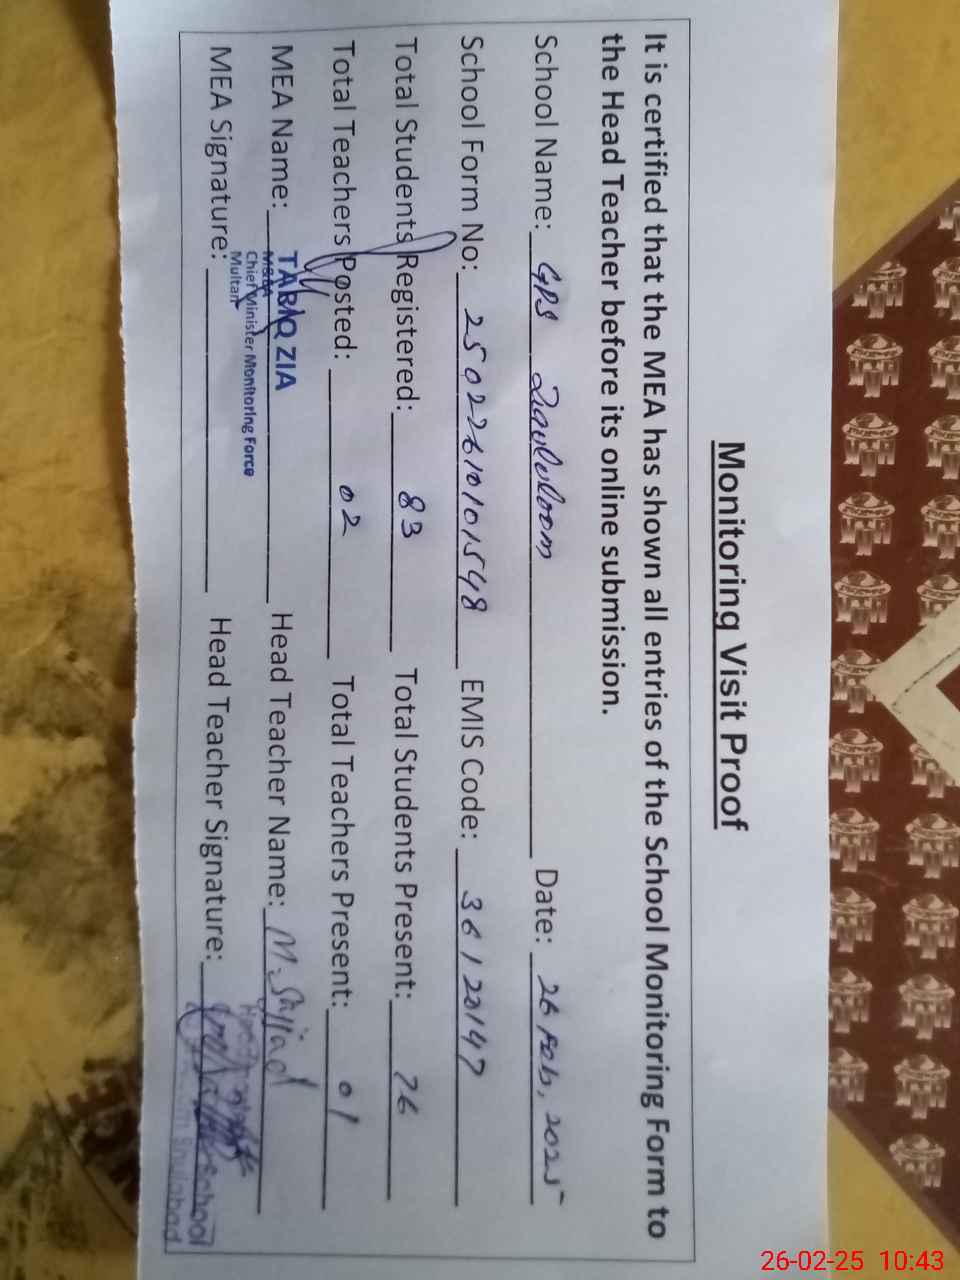 Monitoring Visit Proof
It is certified that the MEA has shown all entries of the School Monitoring Form to
the Head Teacher before its online submission.
School Name: GPS Ziaululoom Date: 26 Feb, 2025
School Form No: 25022610101548 EMIS Code: 36120147
Total Students Registered: 83 Total Students Present: 76
Total Teachers Posted: 02 Total Teachers Present: 01
MEA Name: TARIQ ZIA Head Teacher Name: M. Sajjad
M&EA
Chief Minister Monitoring Force
Multan
MEA Signature: Head Teacher Signature:
School
Shujabad
26-02-25 10:43